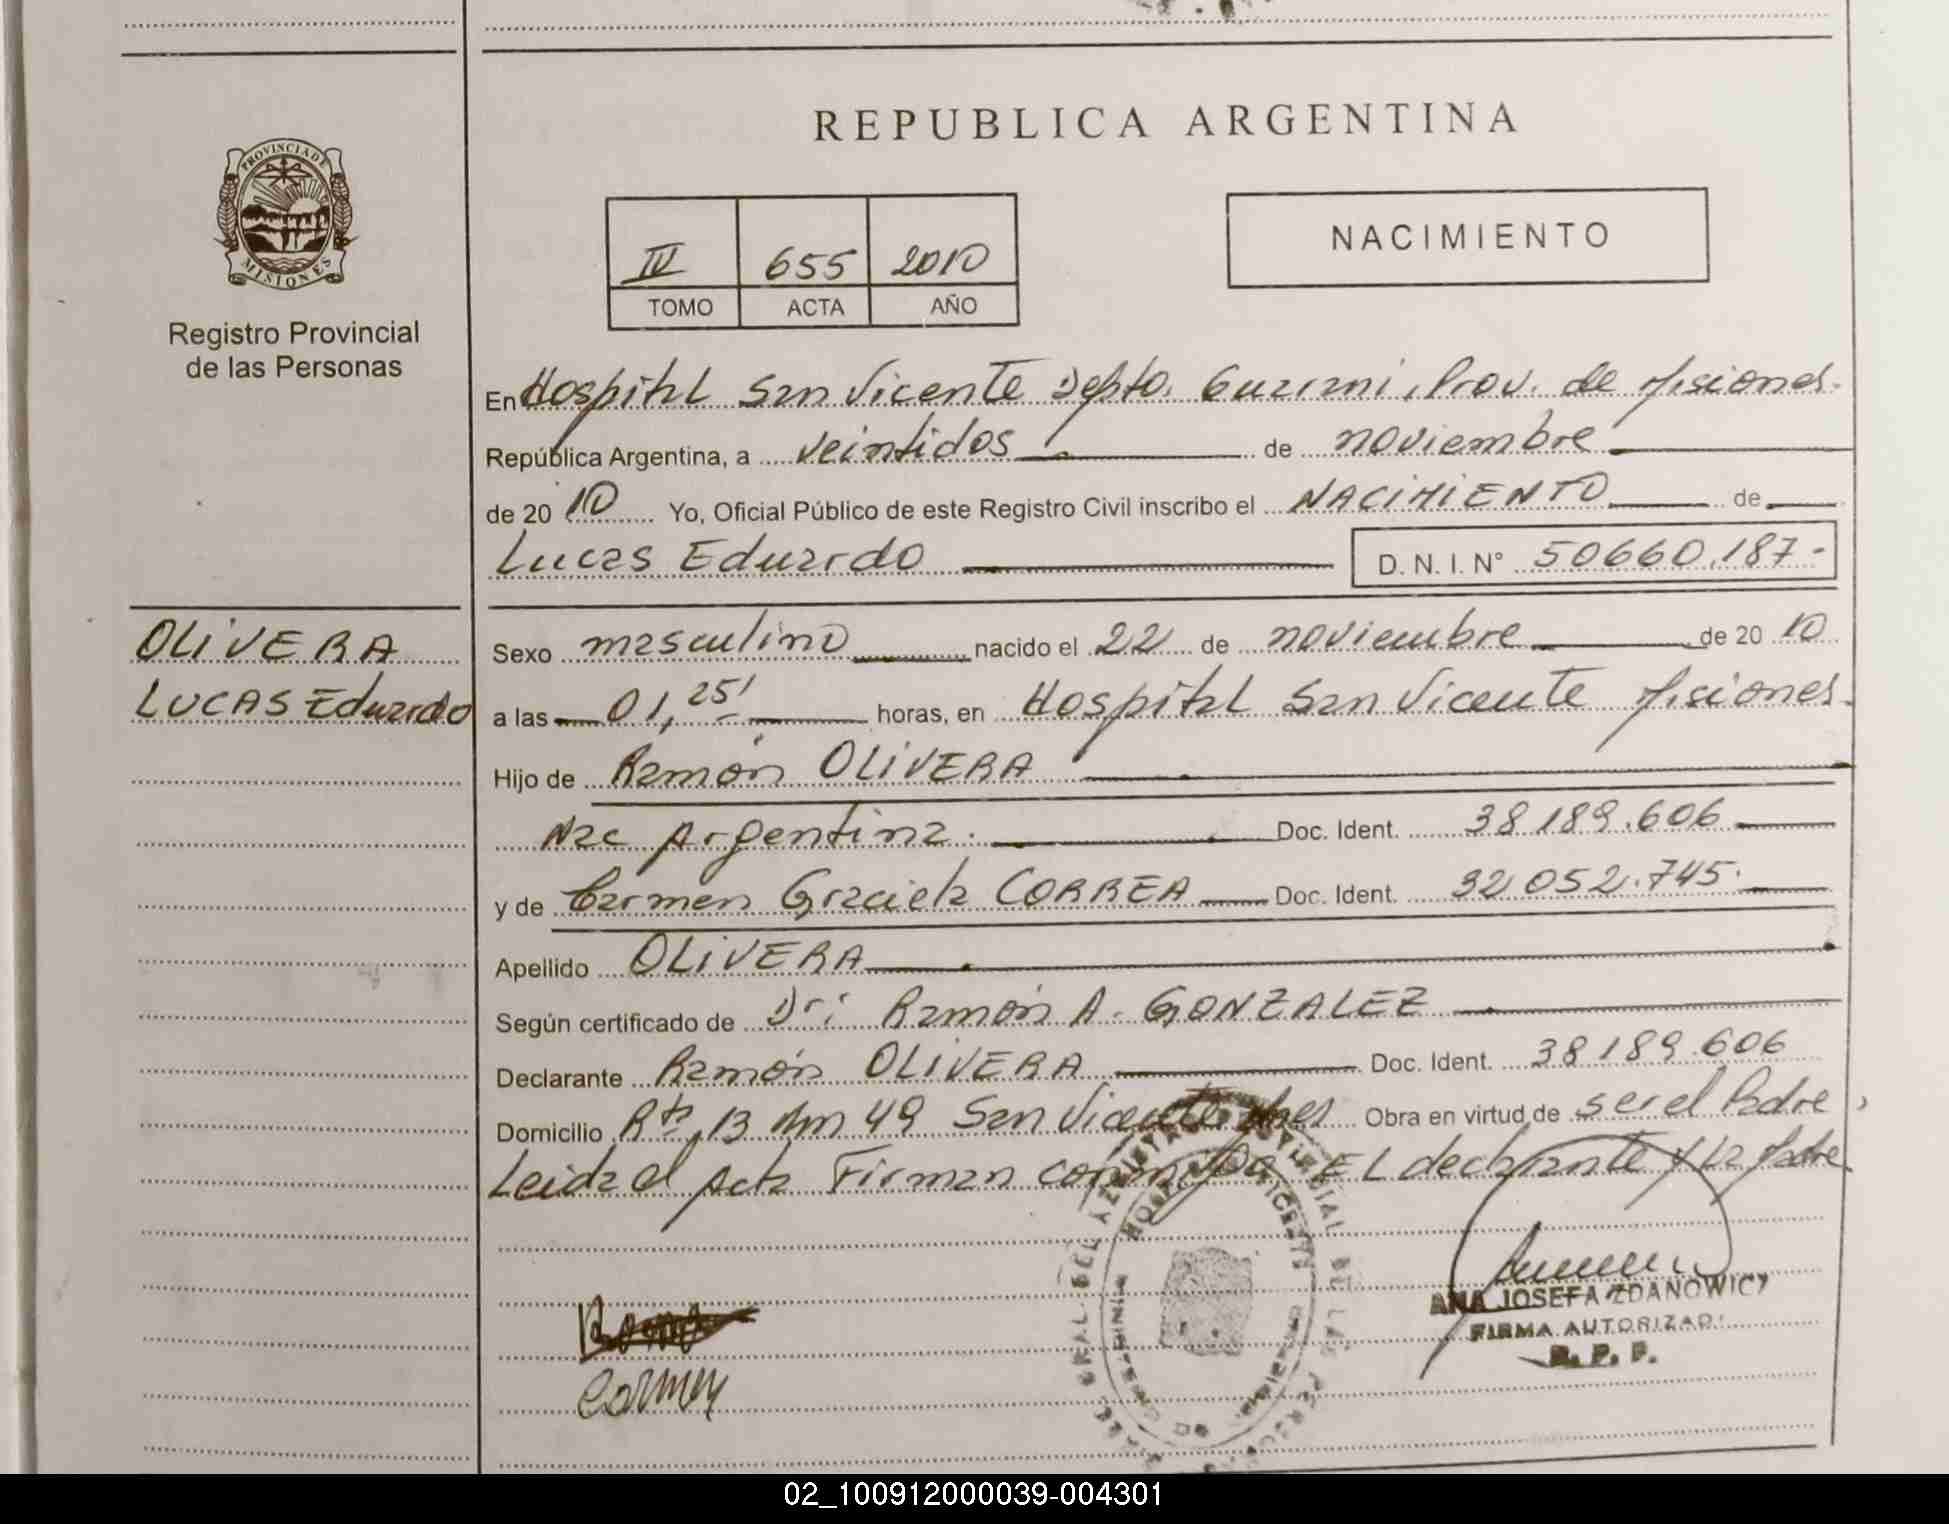 REPUBLICA ARGENTINA
PROVINCIA DE MISIONES
Registro Provincial
de las Personas
IV 655 2010
TOMO ACTA AÑO
NACIMIENTO
En Hospital San Vicente Depto. Guarani, Prov. de Misiones.
República Argentina, a veintidos de noviembre
de 2010 Yo, Oficial Público de este Registro Civil inscribo el NACIMIENTO de
Lucas Eduardo D. N. I. N° 50660.187-
OLIVERA
LUCAS Eduardo
Sexo masculino nacido el 22 de noviembre de 2010
a las 01,25' horas, en Hospital San Vicente Misiones.
Hijo de Ramón OLIVERA
Nac Argentina. Doc. Ident. 38189.606
y de Carmen Graciela CORREA Doc. Ident. 32052.745.
Apellido OLIVERA
Según certificado de Dr: Ramón A. GONZALEZ
Declarante Ramón OLIVERA Doc. Ident. 38189.606
Domicilio Rta 13 Km 49 San Vicente Mnes Obra en virtud de ser el Padre,
Leida el Acta Firman conmigo EL declarante y La Madre
Carmen
ANA JOSEFA ZDANOWICZ
FIRMA AUTORIZADA
R. P. P.
02_100912000039-004301